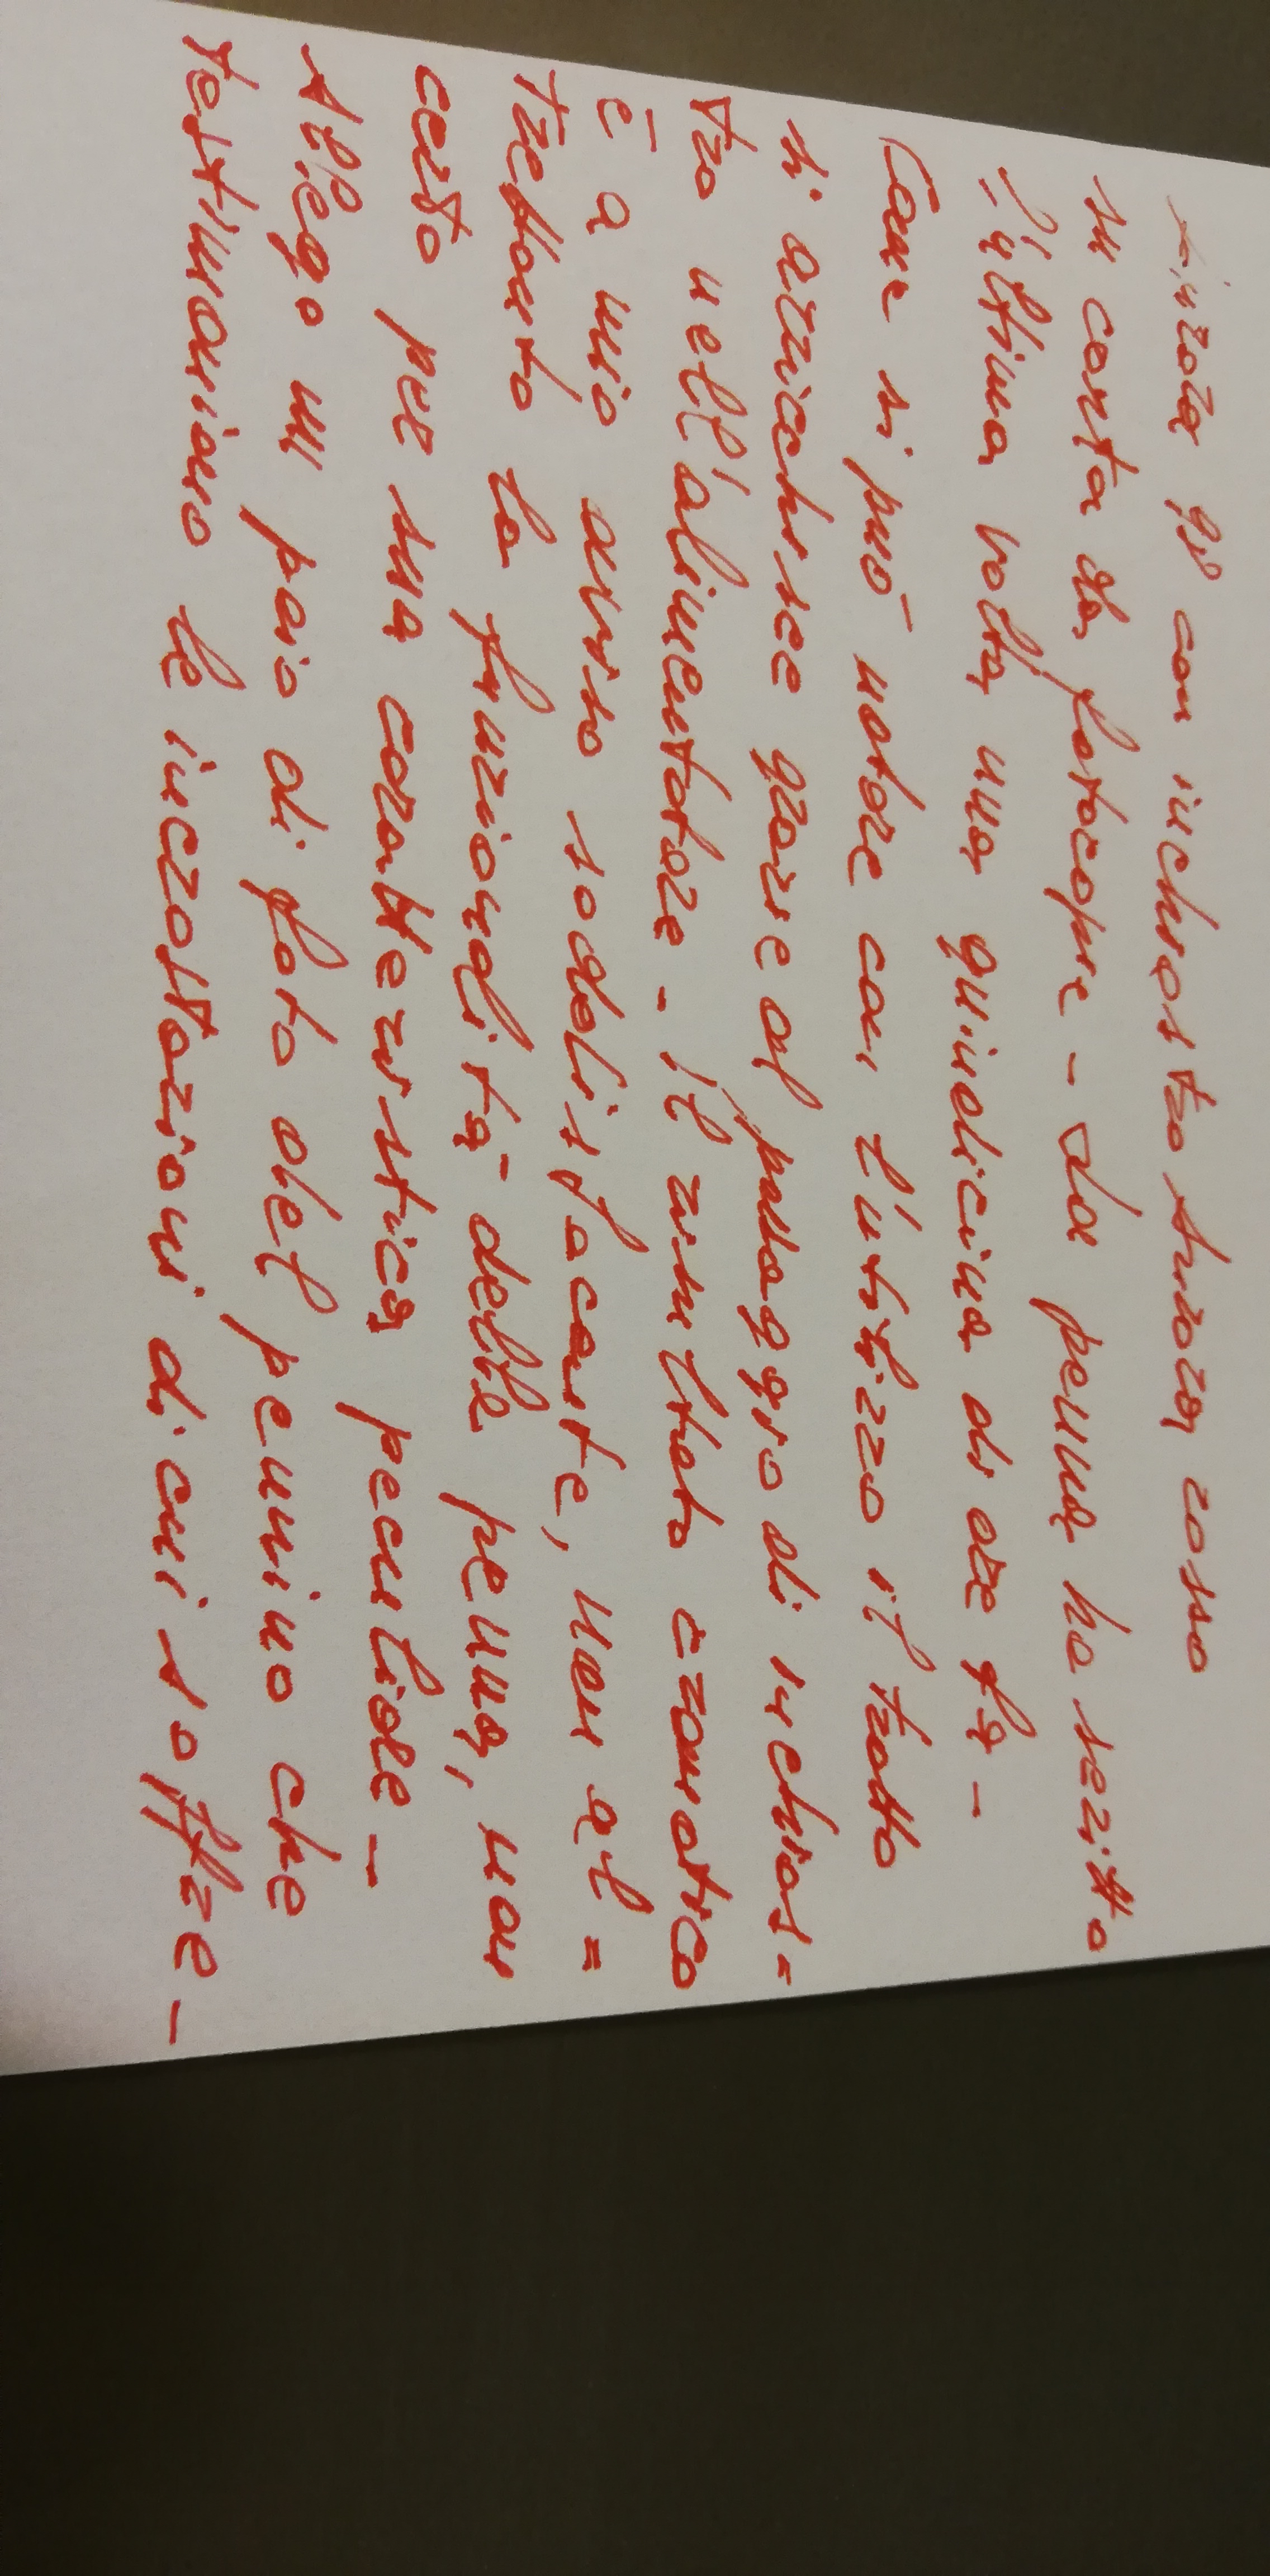 Aurora 98 con inchiostro Aurora rosso
su carta da fotocopie - La penna ha scritto
l'ultima volta una quindicina di ore fa -
Come si può notare con l'utilizzo il tratto
si arricchisce grazie al passaggio di inchios=
tro nell'alimentatore - il risultato cromatico
è a mio avviso soddisfacente, non al=
trettanto la funzionalità della penna, non
certo per sua caratteristica peculiare -
Allego un paio di foto del pennino che
testimoniano le incrostazioni di cui soffre -